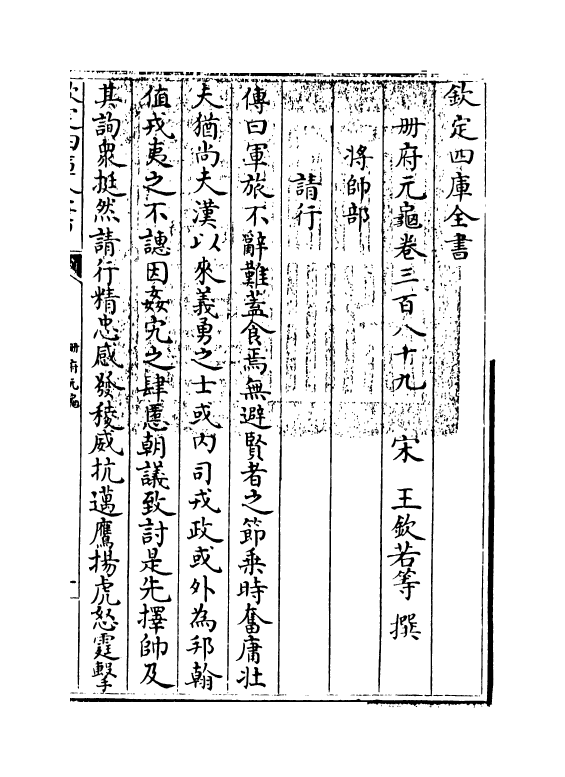 欽定四庫全書
册府元龜卷三百八十九　宋　王欽若等　撰
將帥部
請行
傳曰軍旅不辭難蓋食焉無避賢者之節乗時奮庸壮
夫猶尚夫漢以來義勇之士或内司戎政或外為邦翰
值戎夷之不譓因姦宄之肆慝朝議致討是先擇帥及
其詢衆挺然請行精忠感發稜威抗邁鷹揚虎怒霆擊
册府元龜